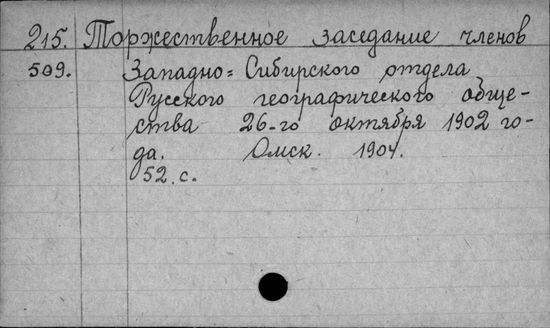 215. Торжественное заседание членов
509. Западно= Сибирского отдела
Русского географического обще-
ства 26-го октября 1902 го-
да. Омск. 1904.
52. с.